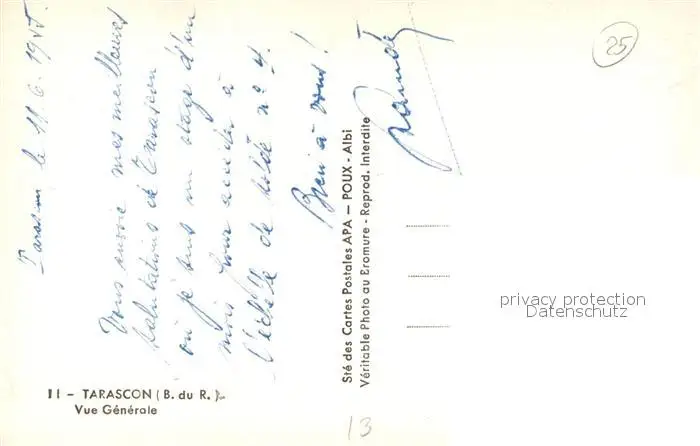 Tarascon le 18.6.1955.
Vous envoie mes meilleures
salutations de Tarascon
où je suis un stage d'un
mois pour accéder à
l'échelle de solde no 4.
Bien à vous!
11 - TARASCON (B. du R.)
Vue Générale
Sté des Cartes Postales APA - POUX - Albi
Véritable Photo au Bromure - Reprod. Interdite
25
13
privacy protection
Datenschutz